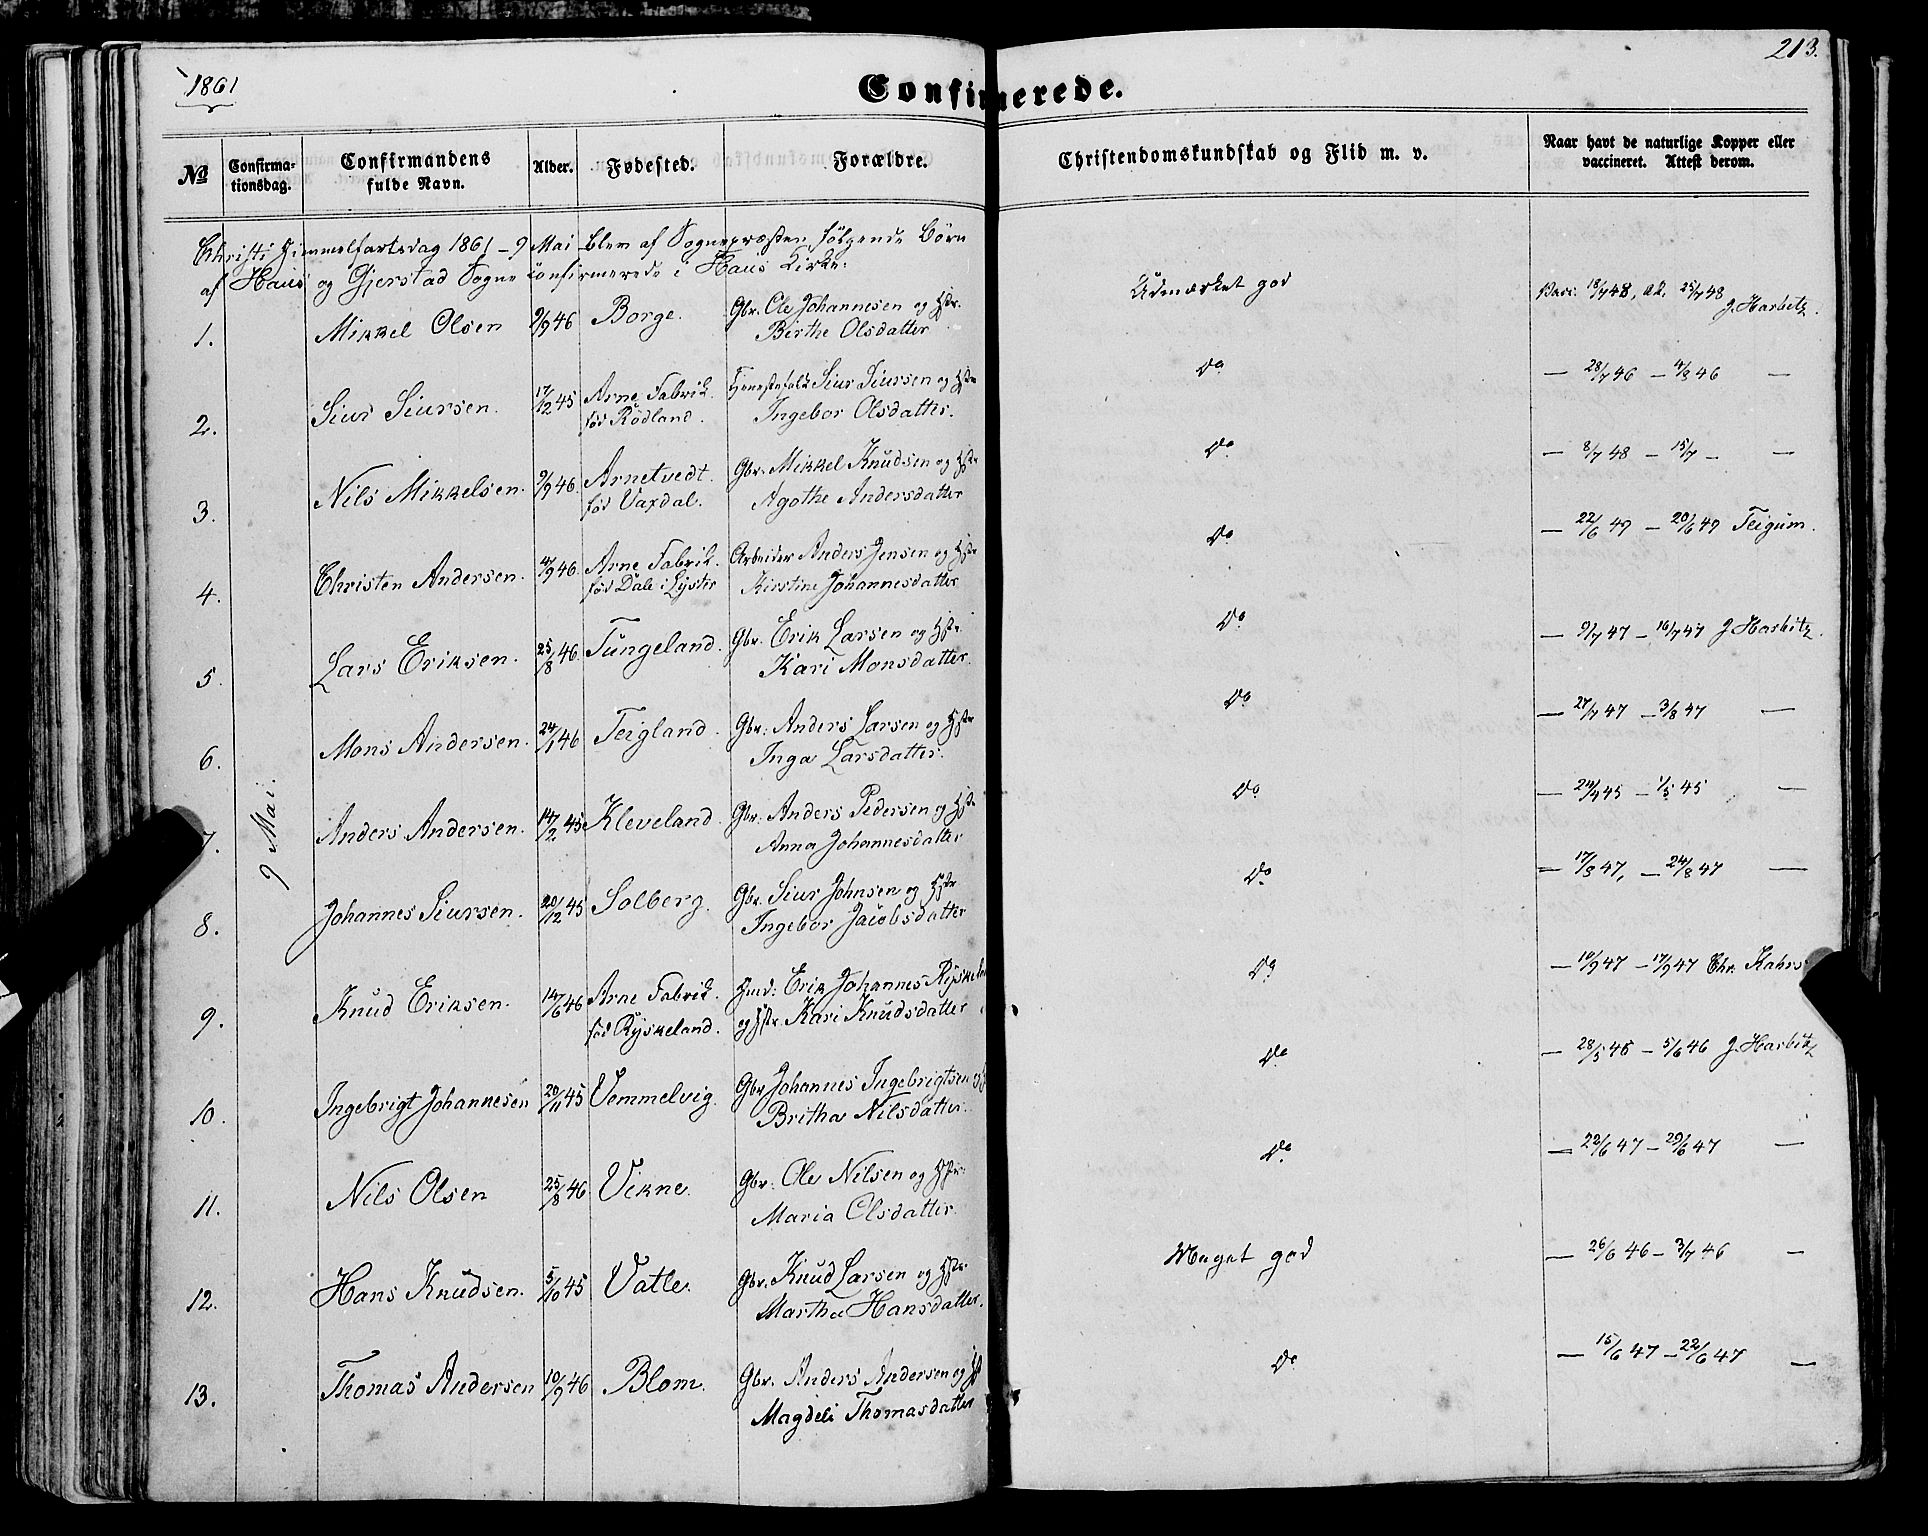 1861
213.
Confirmerede.
№
Confirma-
tionsdag.
Confirmandens
fulde Navn.
Alder.
Fødested.
Forældre.
Christendomskundskab og Flid m. v.
Naar havt de naturlige Kopper eller
vaccineret. Attest derom.
Christi Himmelfartsdag 1861 - 9 Mai blev af Sognepræsten følgende Börn
af Haus og Gjerstad Sogne confirmerede i Haus Kirke:
9 Mai.
1. Mikkel Olsen 9/9 46 Borge. Gbr. Ole Johannesen og Hstr.
Birthe Olsdatter
Udmærket god
Vacc. 18/7 48, at. 25/7 48
J. Harbitz.
2. Siur Siursen. 17/12 45 Arne Fabrik. Tjenestefolk Siur Siursen og Hstr
fød Rödland. Ingebor Olsdatter.
Do
— 28/7 46 — 4/8 46 —
3. Nils Mikkelsen. 9/9 46. Arnetvedt. Gbr. Mikkel Knudsen og Hstr
fød Vaxdal. Agothe Andersdatter
Do
— 8/7 48 — 15/7 — —
4. Christen Andersen. 4/9 46 Arne Fabrik. Arbeider Anders Jensen og Hstr
fød Dale i Lyster Kirstine Johannesdatter
Do
— 22/6 49 — 20/6 49 Teigum.
5. Lars Eriksen. 25/8 46. Tungeland. Gbr. Erik Larsen og Hstr
Kari Monsdatter.
Do
— 9/7 47 — 16/7 47 J. Harbitz.
6. Mons Andersen. 24/1 46 Teigland. Gbr. Anders Larsen og Hstr
Inga Larsdatter.
Do
— 27/7 47 — 3/8 47 —
7. Anders Andersen. 14/2 45 Kleveland. Gbr. Anders Pedersen og Hstr
Anna Johannesdatter
Do
— 24/4 45 — 1/5 45 —
8. Johannes Siursen. 20/12 45 Solberg. Gbr. Siur Johnsen og Hstr
Ingebor Jacobsdatter
Do
— 17/8 47, — 24/8 47 —
9. Knud Eriksen. 14/6 46 Arne Fabrik. Erik Johannes
fød Ryskeland. og Hstr. Kari Knudsdatter
Do
— 10/9 47 — 17/9 47 Chr. Kahrs
10. Ingebrigt Johannesen 20/11 45 Vemmelvig. Gbr Johannes Ingebrigtsen og
Britha Nilsdatter.
Do
— 28/5 46 — 5/6 46 J. Harbitz
11. Nils Olsen 25/8 46 Vikne. Gbr. Ole Nilsen og Hstr.
Maria Olsdatter.
Do
— 22/6 47 — 29/6 47 —
12. Hans Knudsen. 5/10 45 Vatle. Gbr. Knud Larsen og Hstr
Martha Hansdatter.
Meget god
— 26/6 46 — 3/7 46 —
13. Thomas Andersen 10/9 46 Blom. Gbr. Anders Andersen og Hst
Magdeli Thomasdatter
Do
— 15/6 47 — 22/6 47 —